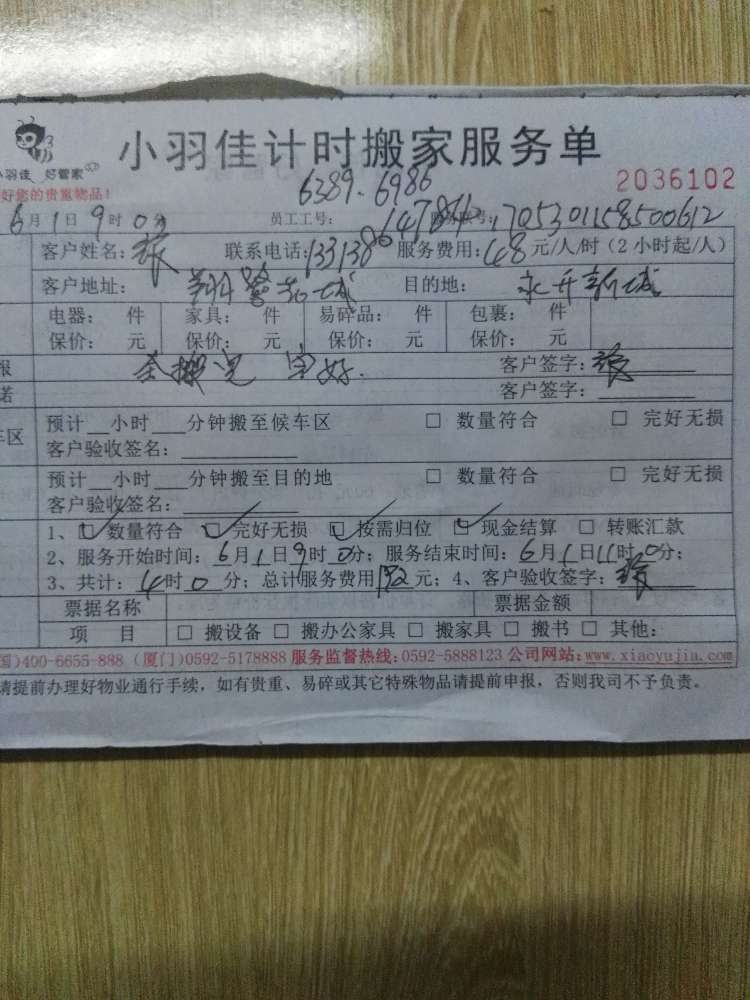 小羽佳计时搬家服务单
小羽佳 好管家
好您的贵重物品!
2036102
6389.6986
6月1日9时0分 员工工号: 1705301158500612
客户姓名:张 联系电话: 服务费用:48元/人/时(2小时起/人)
客户地址: 目的地:
电器: 件 家具: 件 易碎品: 件 包裹: 件
保价: 元 保价: 元 保价: 元 保价: 元
报 全搬完 完好. 客户签字:张
诺 客户签字:
预计 小时 分钟搬至候车区 □ 数量符合 □ 完好无损
车区 客户验收签名:
预计 小时 分钟搬至目的地 □ 数量符合 □ 完好无损
客户验收签名:
1、☑ 数量符合 ☑ 完好无损 ☑ 按需归位 ☑ 现金结算 □ 转账汇款
2、服务开始时间:6月1日9时0分;服务结束时间:6月1日11时0分;
3、共计:4时0分;总计服务费用192元;4、客户验收签字:张
票据名称 票据金额
项 目 □ 搬设备 □ 搬办公家具 □ 搬家具 □ 搬书 □ 其他:
国)400-6655-888 (厦门)0592-5178888 服务监督热线:0592-5888123 公司网站:www.xiaoyujia.com
请提前办理好物业通行手续,如有贵重、易碎或其它特殊物品请提前申报,否则我司不予负责。